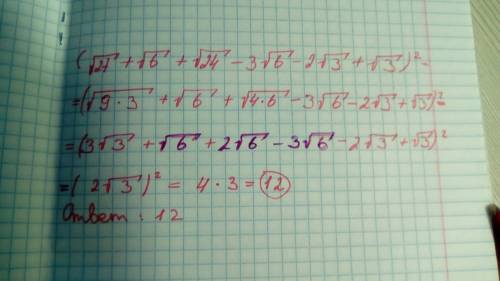 (√27 + √6 + √24 - 3√6 - 2√3 + √3)² =
= (√9·3 + √6 + √4·6 - 3√6 - 2√3 + √3)² =
= (3√3 + √6 + 2√6 - 3√6 - 2√3 + √3)²
= (2√3)² = 4·3 = 12
Ответ: 12